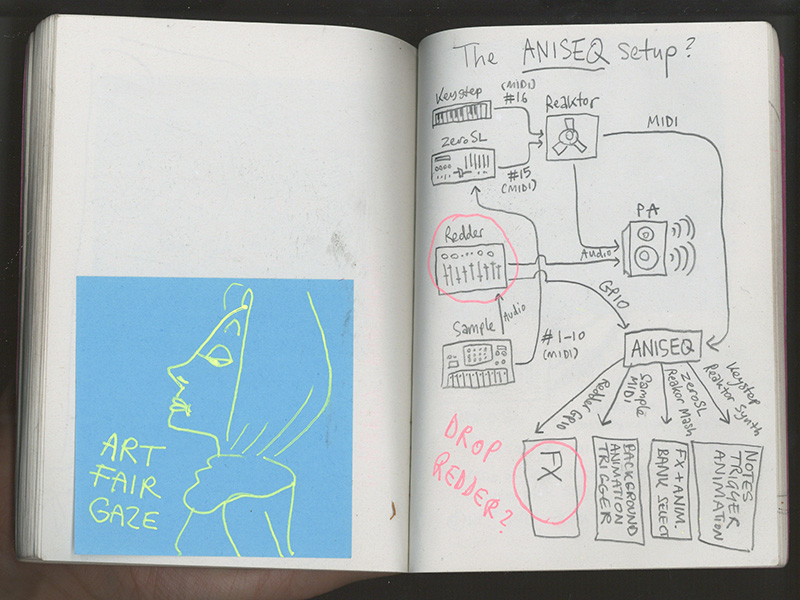 ART
FAIR
GAZE
The ANISEQ setup?
Keystep
(MIDI)
#16
Reaktor
MIDI
ZeroSL
#15
(MIDI)
PA
Redder
Audio
GPIO
Sample
Audio
#1-10
(MIDI)
ANISEQ
Redder GPIO
Sample
MIDI
ZeroSL
Reakor Mash
Keystep
Reaktor Synth
DROP
REDDER?
FX
BACKGROUND
ANIMATION
TRIGGER
FX + ANIM.
BANK SELECT
NOTES
TRIGGER
ANIMATION